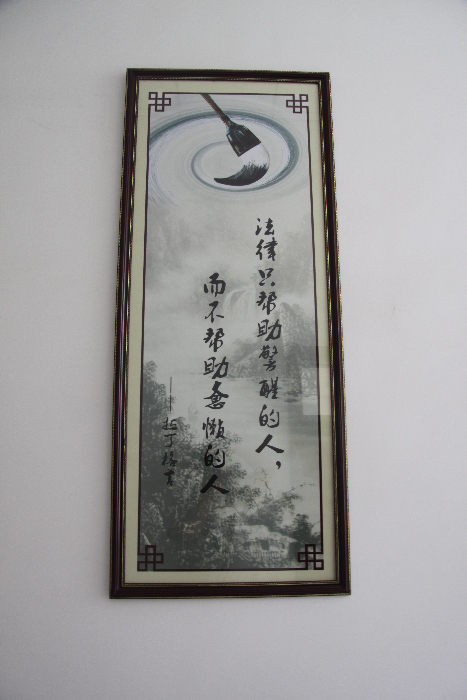 法律只帮助警醒的人，
而不帮助怠懒的人
——拉丁格言